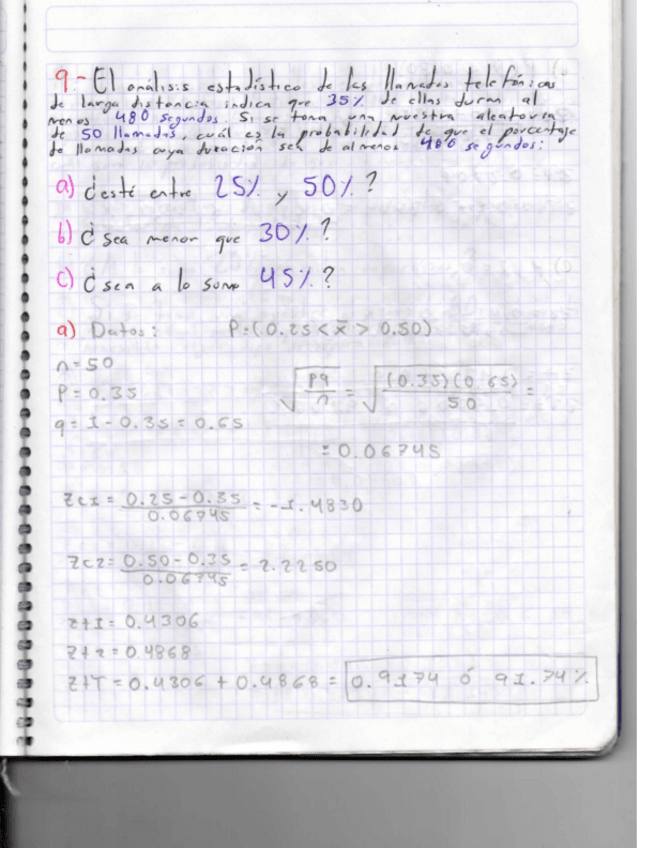 9.- El análisis estadístico de las llamadas telefónicas
de larga distancia indica que 35% de ellas duran al
menos 480 segundos. Si se toma una muestra aleatoria
de 50 llamadas, cuál es la probabilidad de que el porcentaje
de llamadas cuya duración sea de al menos 480 segundos:
a) ¿esté entre 25% y 50%?
b) ¿sea menor que 30%?
c) ¿sea a lo sumo 45%?
a) Datos: P=(0.25 < x̄ > 0.50)
n=50
P=0.35
q=1-0.35=0.65
√(pq/n) = √((0.35)(0.65)/50) =
= 0.06745
Zc1 = (0.25-0.35)/0.06745 = -1.4830
Zc2= (0.50-0.35)/0.06745 = 2.2250
Zt1= 0.4306
Zt2=0.4868
ZtT = 0.4306 + 0.4868 = 0.9174 ó 91.74%